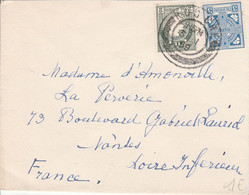 Madame d'Amenoville,
La Perverie
73 Boulevard Gabriel Lauriol
Nantes
Loire Inférieure
France.
1€